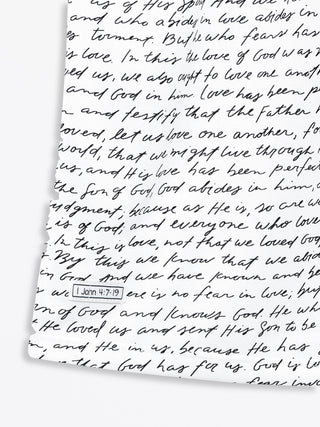 us of His Spirit And we have
and who abides in love abides in
torment. But he who fears has
is love. In this the love of God was m
ved us, we also ought to love one anoth
and God in him. Love has been p
and testify that the Father h
loved, let us love one another, fo
world, that we might live through
us, and His love has been perfec
the Son of God, God abides in him, a
udgment, because as He is, so are w
is of God, and everyone who love
In this is love, not that we loved God
By this we know that we abid
in God And we have known and be
1 John 4:7-19 ere is no fear in love; but
en of God and knows God. He wh
He loved us and sent His Son to be
, and He in us, because He has
that God has for us. God is lo
fear invo